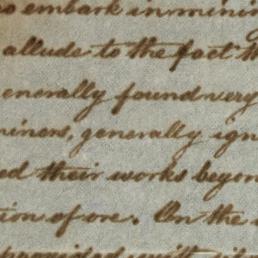 to embark in minin
allude to the fact th
enerally found very
miners, generally ign
ed their works beyon
tion of ore. On the
provided with